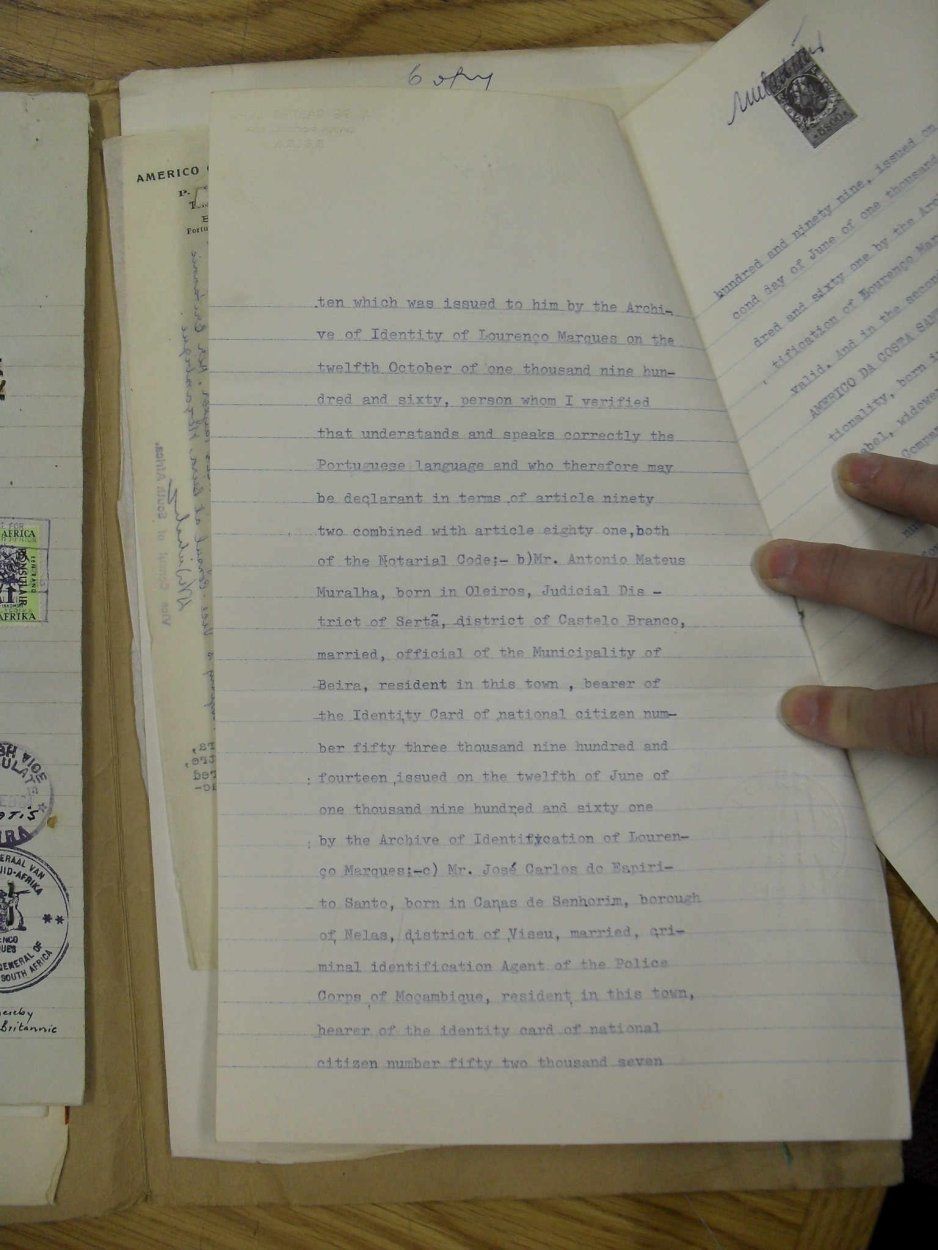 Copy
AMERICO
P.
ten which was issued to him by the Archi-
ve of Identity of Lourenço Marques on the
twelfth October of one thousand nine hun-
dred and sixty, person whom I verified
that understands and speaks correctly the
Portuguese language and who therefore may
be declarant in terms of article ninety
two combined with article eighty one,both
of the Notarial Code;- b)Mr. Antonio Mateus
Muralha, born in Oleiros, Judicial Dis -
trict of Sertã, district of Castelo Branco,
married, official of the Municipality of
Beira, resident in this town , bearer of
the Identity Card of national citizen num-
ber fifty three thousand nine hundred and
fourteen issued on the twelfth of June of
one thousand nine hundred and sixty one
by the Archive of Identification of Louren-
ço Marques;-c) Mr. José Carlos do Espiri-
to Santo, born in Canas de Senhorim, borough
of Nelas, district of Viseu, married, cri-
minal identification Agent of the Police
Corps of Moçambique, resident in this town,
bearer of the identity card of national
citizen number fifty two thousand seven
hundred and ninety nine, issued on
cond day of June of one thousand
dred and sixty one by the Arc
tification of Lourenço Mar
valid. And in the second
AMERICO DA COSTA SAN
tionality, born i
abel, widower
Compan
Vice Consul of South Africa.
AFRICA
AFRIKA
ERAAL VAN
UID-AFRIKA
GENERAL OF
SOUTH AFRICA
ereby
Britannic